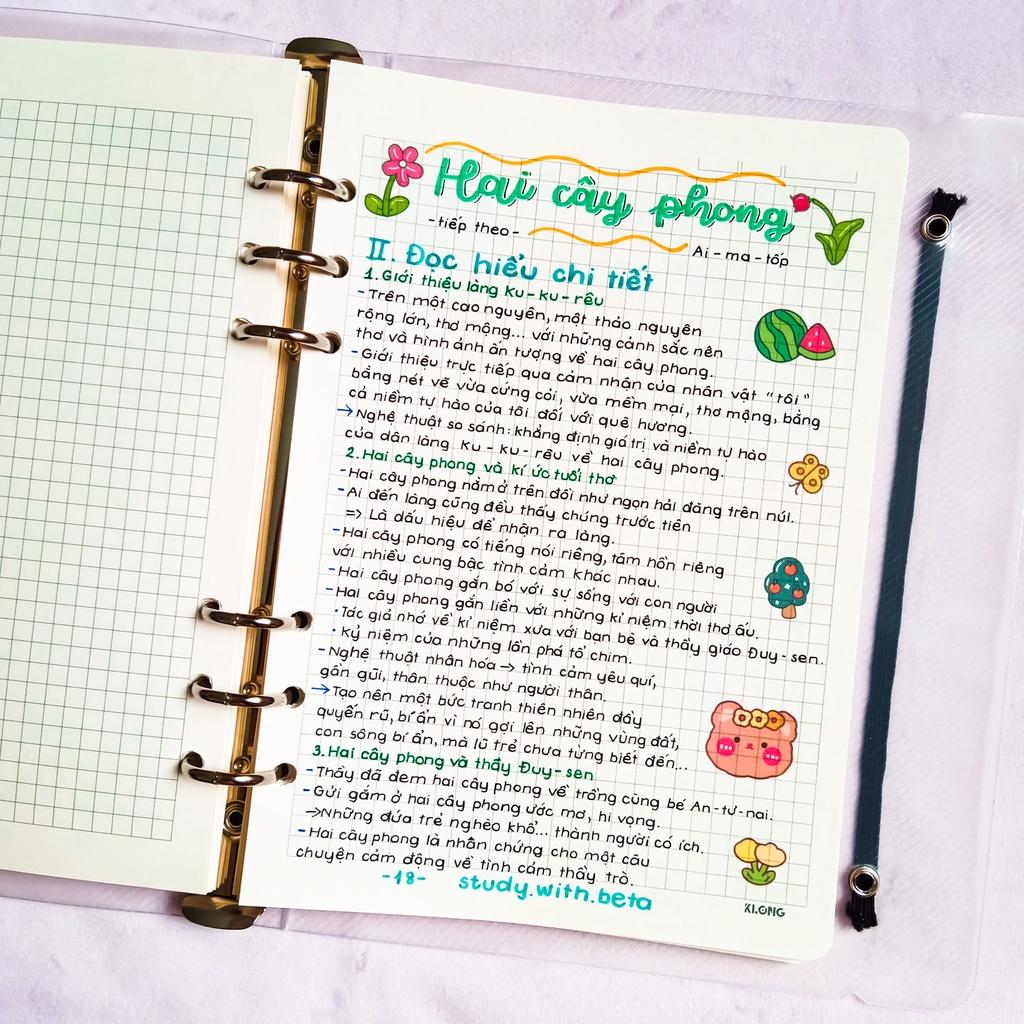 Hai cây phong
-tiếp theo-
Ai-ma-tốp
II. Đọc hiểu chi tiết
1. Giới thiệu làng Ku-ku-rêu
-Trên một cao nguyên, một thảo nguyên
rộng lớn, thơ mộng... với những cảnh sắc nên
thơ và hình ảnh ấn tượng về hai cây phong.
-Giới thiệu trực tiếp qua cảm nhận của nhân vật "tôi"
bằng nét vẽ vừa cứng cỏi, vừa mềm mại, thơ mộng, bằng
cả niềm tự hào của tôi đối với quê hương.
→Nghệ thuật so sánh: khẳng định giá trị và niềm tự hào
của dân làng Ku-ku-rêu về hai cây phong.
2. Hai cây phong và kí ức tuổi thơ
-Hai cây phong nằm ở trên đồi như ngọn hải đăng trên núi.
-Ai đến làng cũng đều thấy chúng trước tiên
=> Là dấu hiệu để nhận ra làng.
-Hai cây phong có tiếng nói riêng, tâm hồn riêng
với nhiều cung bậc tình cảm khác nhau.
-Hai cây phong gắn bó với sự sống với con người
-Hai cây phong gắn liền với những kỉ niệm thời thơ ấu.
•Tác giả nhớ về kỉ niệm xưa với bạn bè và thầy giáo Đuy-sen.
•Kỷ niệm của những lần phá tổ chim.
-Nghệ thuật nhân hóa → tình cảm yêu quí,
gần gũi, thân thuộc như người thân.
→Tạo nên một bức tranh thiên nhiên đầy
quyến rũ, bí ẩn vì nó gợi lên những vùng đất,
con sông bí ẩn, mà lũ trẻ chưa từng biết đến...
3. Hai cây phong và thầy Đuy-sen
-Thầy đã đem hai cây phong về trồng cùng bé An-tư-nai.
-Gửi gắm ở hai cây phong ước mơ, hi vọng.
→Những đứa trẻ nghèo khổ... thành người có ích.
-Hai cây phong là nhân chứng cho một câu
chuyện cảm động về tình cảm thầy trò.
-18- study.with.beta
KLONG